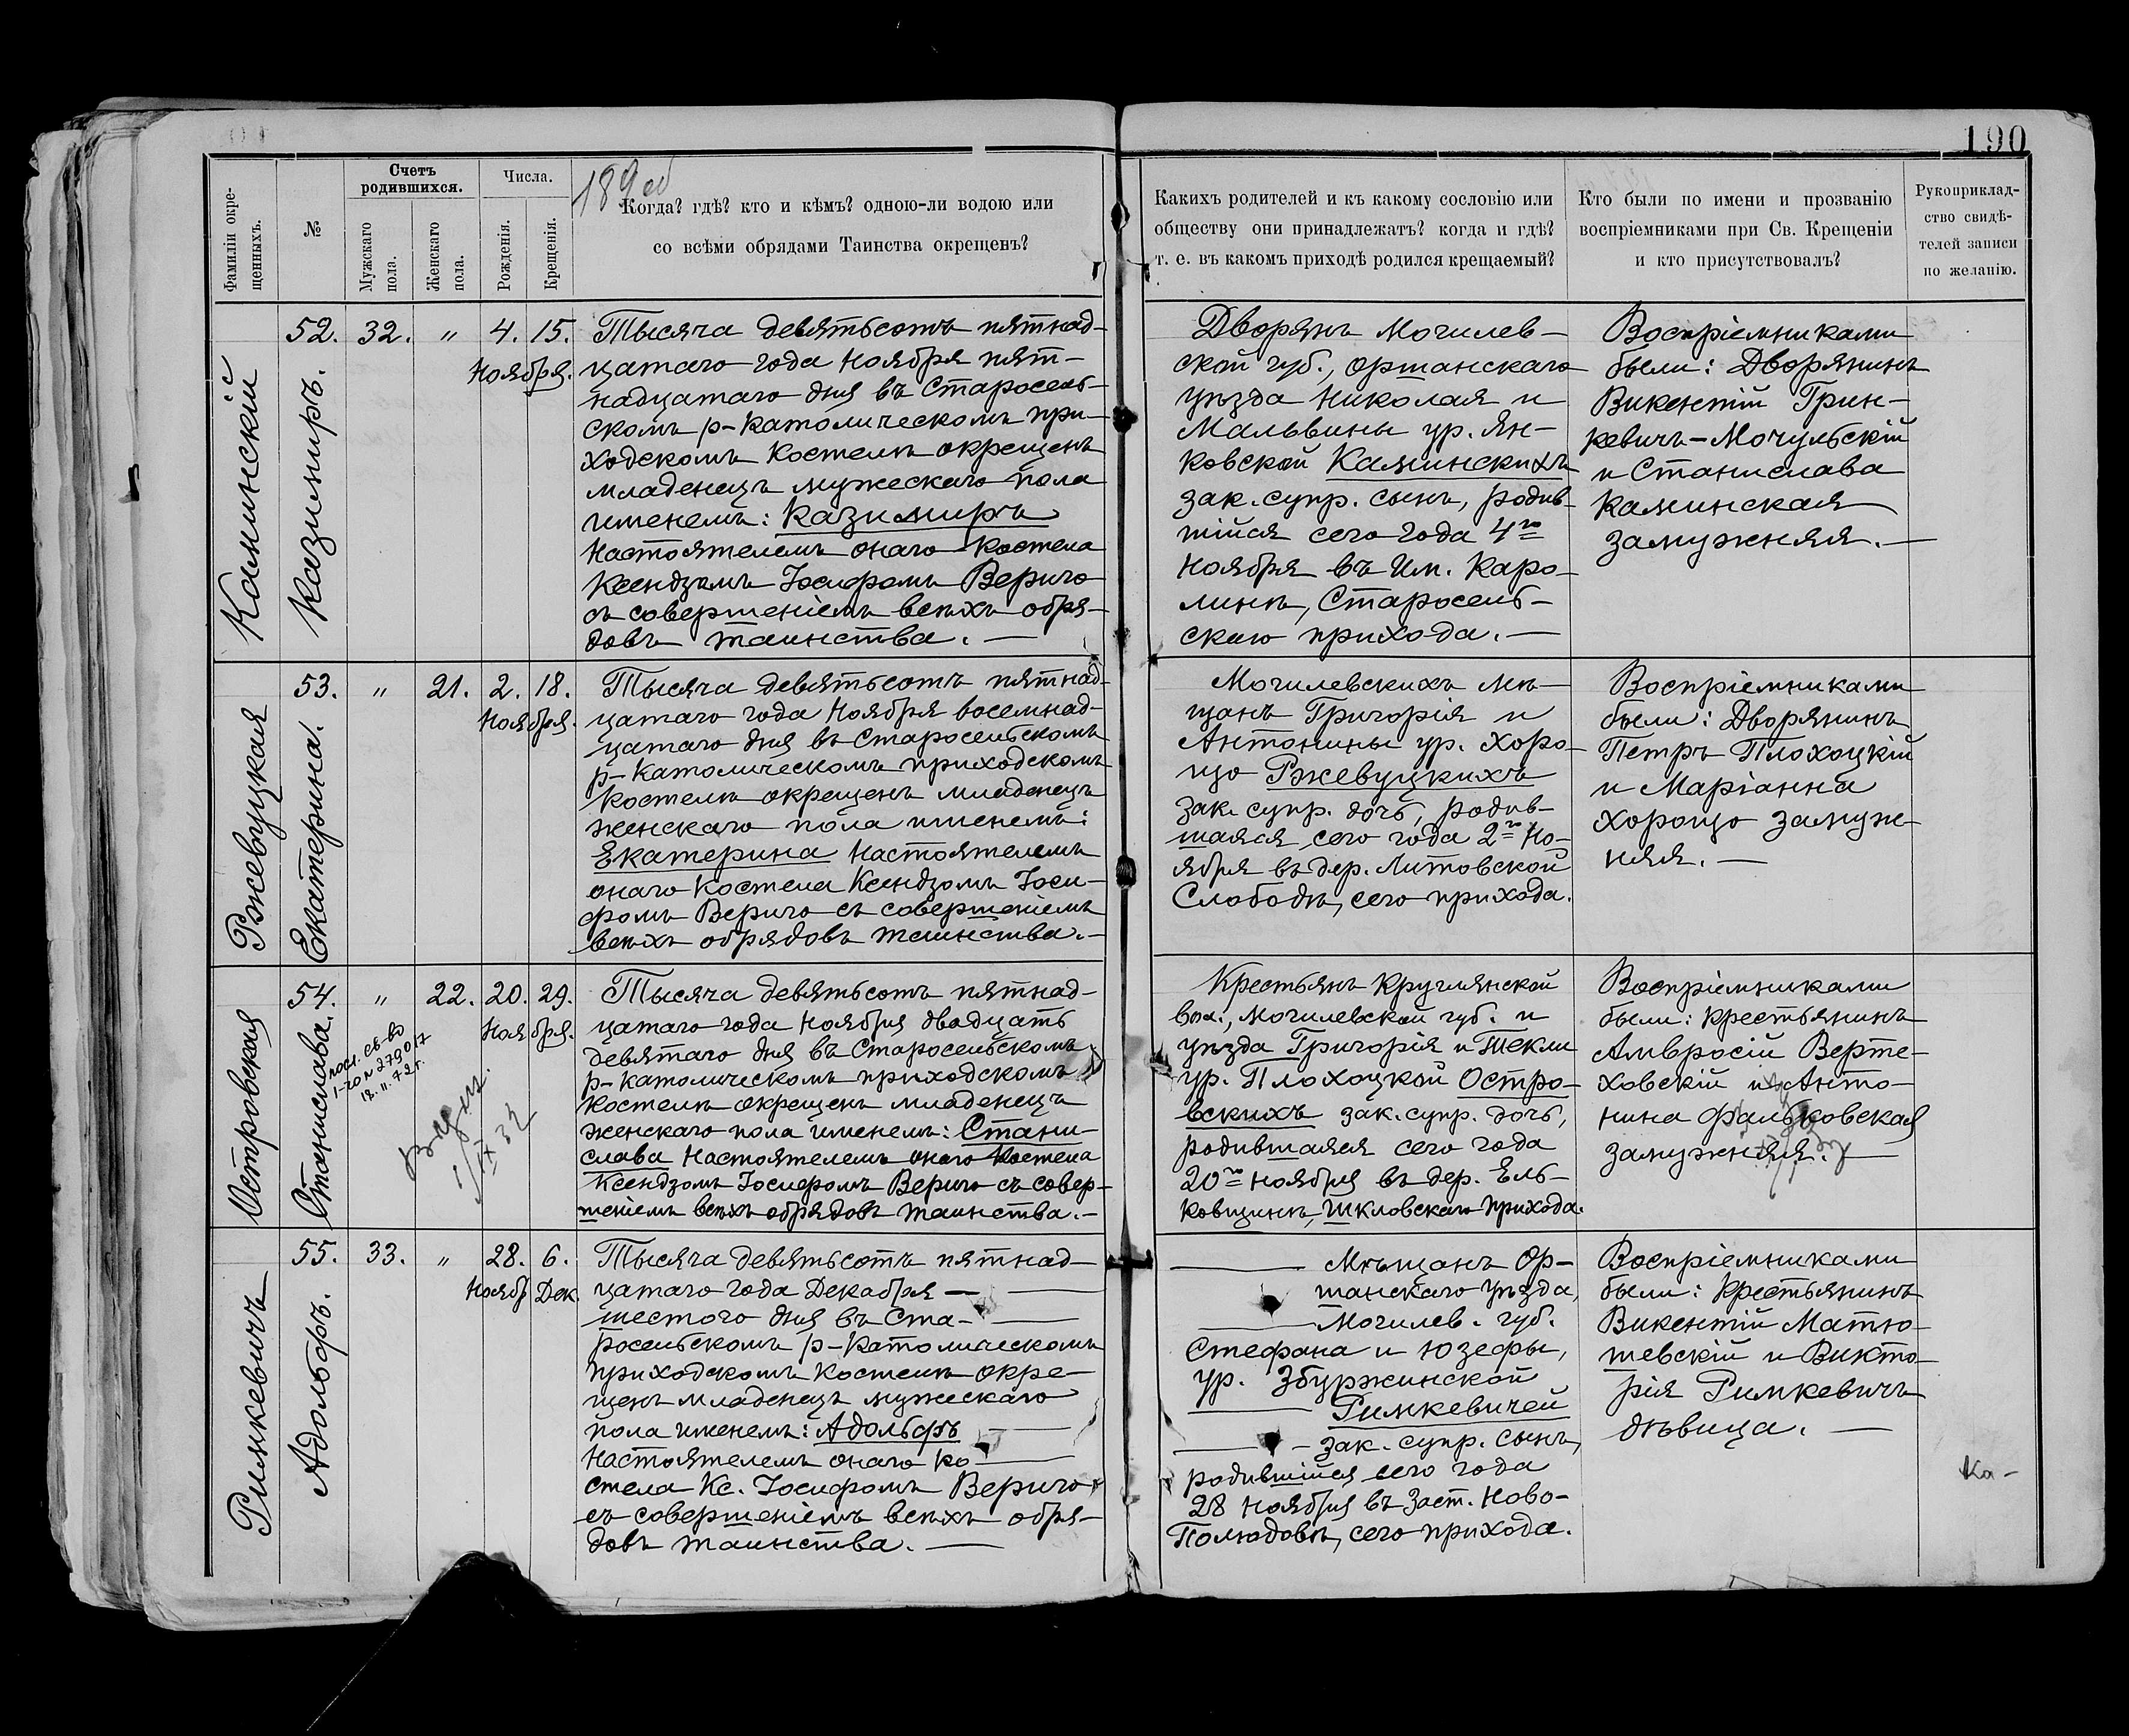 190
Фамиліи окре-
щенныхъ.
№
Счетъ
родившихся.
Мужскаго
пола.
Женскаго
пола.
Числа.
Рожденія.
Крещенія.
Когда? гдѣ? кто и кѣмъ? одною-ли водою или
со всѣми обрядами Таинства окрещенъ?
Какихъ родителей и къ какому сословію или
обществу они принадлежатъ? когда и гдѣ?
т. е. въ какомъ приходѣ родился крещаемый?
Кто были по имени и прозванію
воспріемниками при Св. Крещеніи
и кто присутствовалъ?
Рукоприклад-
ство свидѣ-
телей записи
по желанію.
Каминскій
Казимиръ.
52. 32. " 4. 15.
Ноября.
Тысяча девятьсотъ пятнад-
цатаго года Ноября пят-
надцатаго дня въ Старосель-
скомъ р-католическомъ при-
ходскомъ костелѣ окрещенъ
младенецъ мужескаго пола
именемъ: Казимиръ
Настоятелемъ онаго костела
Ксендзомъ Іосифомъ Вериго
съ совершеніемъ всѣхъ обря-
довъ таинства. —
Дворянъ Могилев-
ской губ., Оршанскаго
уѣзда Николая и
Мальвины ур. Ян-
ковской Каминскихъ
зак. супр. сынъ, родив-
шійся сего года 4го
Ноября въ им. Каро-
линѣ, Старосель-
скаго прихода. —
Воспріемниками
были: Дворянинъ
Викентій Грин-
кевичъ-Мочульскій
и Станислава
Каминская
замужняя. —
Ржевуцкая
Екатерина.
53. " 21. 2. 18.
Ноября.
Тысяча девятьсотъ пятнад-
цатаго года Ноября восемнад-
цатаго дня въ Старосельскомъ
р-католическомъ приходскомъ
костелѣ окрещенъ младенецъ
женскаго пола именемъ:
Екатерина Настоятелемъ
онаго костела Ксендзомъ Іоси-
фомъ Вериго съ совершеніемъ
всѣхъ обрядовъ таинства. —
Могилевскихъ мѣ-
щанъ Григорія и
Антонины ур. Хоро-
що Ржевуцкихъ
зак. супр. дочь, родив-
шаяся сего года 2го Но-
ября въ дер. Литовской
Слободѣ, сего прихода.
Воспріемниками
были: Дворянинъ
Петръ Плохоцкій
и Маріанна
Хорощо замуж-
няя. —
Островская
Станислава.
54. " 22. 20. 29.
Ноября.
посл. св-во
1-20 N 279017
18. 11. 72 г.
1/IX 32
Тысяча девятьсотъ пятнад-
цатаго года Ноября двадцать
девятаго дня въ Старосельскомъ
р-католическомъ приходскомъ
костелѣ окрещенъ младенецъ
женскаго пола именемъ: Стани-
слава Настоятелемъ онаго костела
Ксендзомъ Іосифомъ Вериго съ совер-
шеніемъ всѣхъ обрядовъ таинства. —
Крестьянъ Круглянской
вол., Могилевской губ. и
уѣзда Григорія и Текли
ур. Плохоцкой Остро-
вскихъ зак. супр. дочь,
родившаяся сего года
20го Ноября въ дер. Ель-
ковщинѣ, Шкловскаго прихода.
Воспріемниками
были: Крестьянинъ
Амвросій Верте-
ховскій и Анто-
нина Фальковская
замужняя. —
Римкевичъ
Адольфъ.
55. 33. " 28. 6.
Ноябр. Дек.
Тысяча девятьсотъ пятнад-
цатаго года Декабря —
шестого дня въ Ста-
росельскомъ р-католическомъ
приходскомъ костелѣ окре-
щенъ младенецъ мужескаго
пола именемъ: Адольфъ
Настоятелемъ онаго ко-
стела Кс. Іосифомъ Вериго
съ совершеніемъ всѣхъ обря-
довъ таинства. —
— Мѣщанъ Ор-
шанскаго уѣзда,
— Могилев. губ.
Стефана и Юзефы,
ур. Збуржинской
— Римкевичей
— зак. супр. сынъ,
родившійся сего года
28 Ноября въ заст. Ново-
Полюдовѣ, сего прихода.
Воспріемниками
были: Крестьянинъ
Викентій Матю-
шевскій и Викто-
рія Римкевичъ
дѣвица. —
Ка-